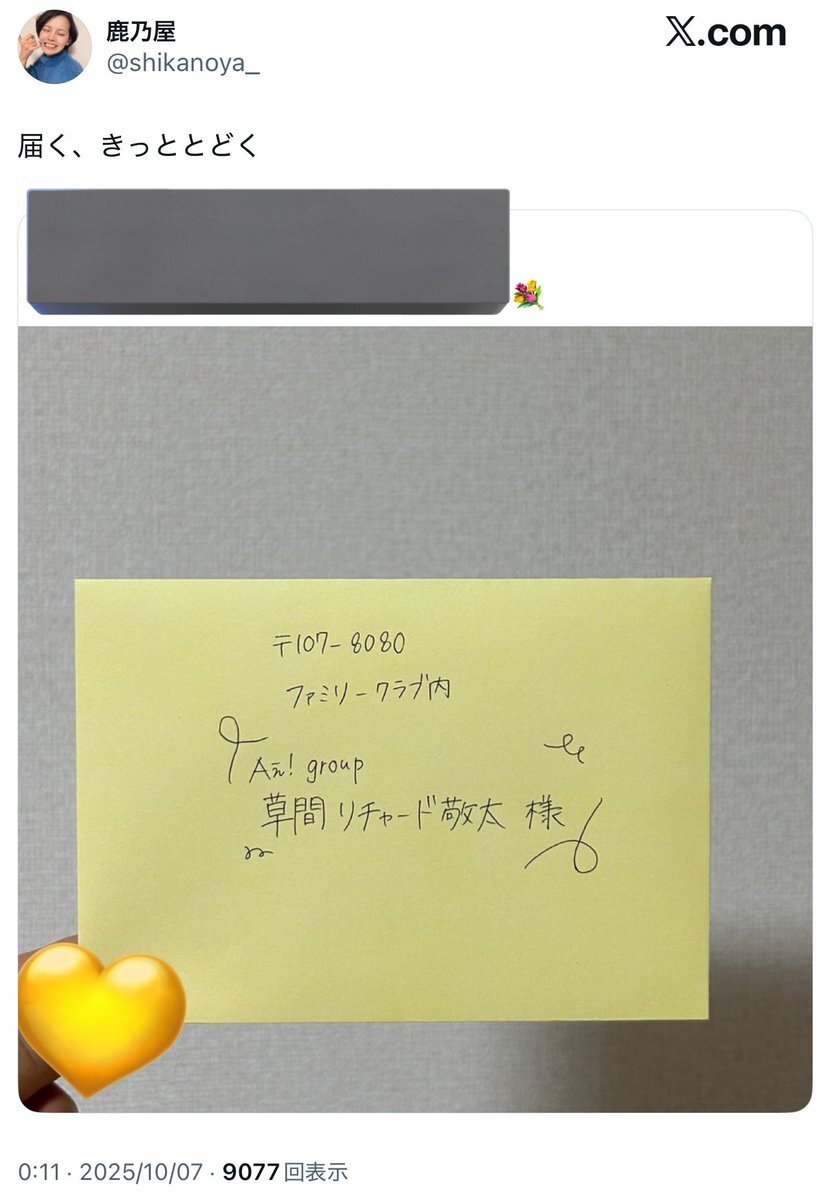 鹿乃屋
@shikanoya_
X.com
届く、きっととどく
〒107-8080
ファミリークラブ内
Aぇ! group
草間リチャード敬太 様
0:11 · 2025/10/07 · 9077回表示